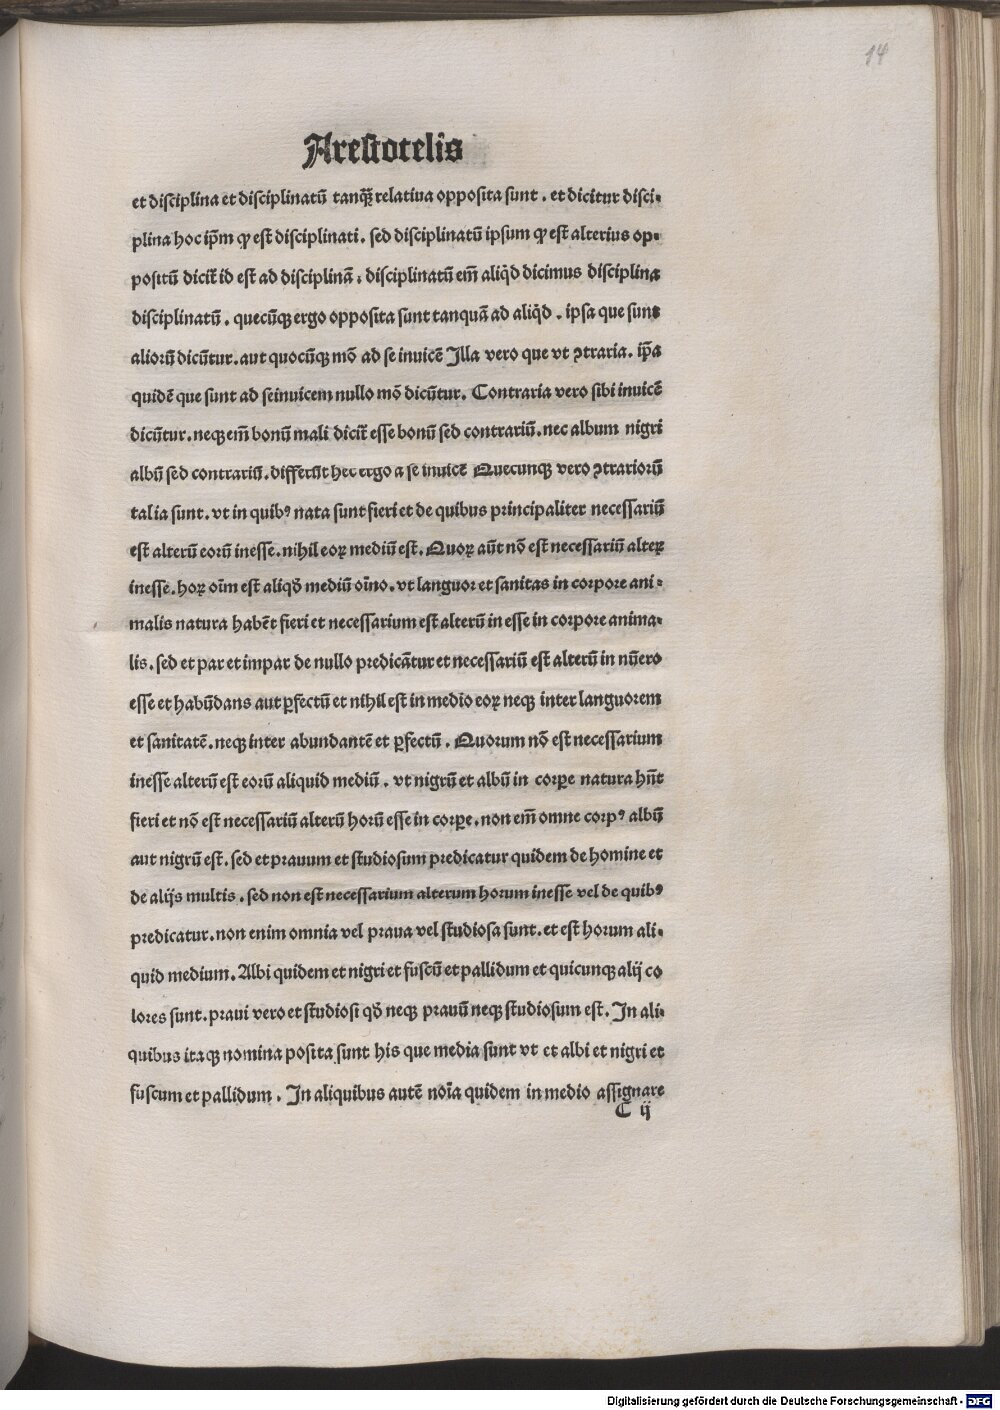 14
Arestotelis
et disciplina et disciplinatū tanqȝ relatiua opposita sunt . et dicitur disci-
plina hoc ip̄m qꝫ est disciplinati . sed disciplinatū ipsum qꝫ est alterius op-
positū dicit̄ id est ad disciplinā . disciplinatū em̄ aliqͥd dicimus disciplina
disciplinatū . quecūqꝫ ergo opposita sunt tanquā ad aliqͥd . ipsa que sunt
aliorū dicūtur . aut quocūqꝫ mō ad se inuicē Illa vero que vt ꝯtraria . ip̄a
quidē que sunt ad seinuicem nullo mō dicūtur . Contraria vero sibi inuicē
dicūtur . neqꝫ em̄ bonū mali dicit̄ esse bonū sed contrariū . nec album nigri
albū sed contrariū . differūt hec ergo a se inuicē Quecunqꝫ vero ꝯtrariorū
talia sunt . vt in quibꝰ nata sunt fieri et de quibus principaliter necessariū
est alterū eorū inesse . nihil eoꝝ mediū est . Quoꝝ aūt nō est necessariū alteꝝ
inesse . hoꝝ oīm est aliqd̄ mediū oīno . vt languor et sanitas in corpore ani-
malis natura habēt fieri et necessarium est alterū in esse in corpore anima-
lis . sed et par et impar de nullo predicātur et necessariū est alterū in nūero
esse et habūdans aut ꝑfectū et nihil est in medio eoꝝ neqꝫ inter languorem
et sanitatē . neqꝫ inter abundantē et ꝑfectū . Quorum nō est necessarium
inesse alterū est eorū aliquid mediū . vt nigrū et albū in corꝑe natura hn̄t
fieri et nō est necessariū alterū horū esse in corꝑe . non em̄ omne corpꝰ albū
aut nigrū est . sed et prauum et studiosum predicatur quidem de homine et
de alijs multis . sed non est necessarium alterum horum inesse vel de quibꝰ
predicatur . non enim omnia vel praua vel studiosa sunt . et est horum ali-
quid medium . Albi quidem et nigri et fuscū et pallidum et quicunqꝫ alij co
lores sunt . praui vero et studiosi qd̄ neqꝫ prauū neqꝫ studiosum est . In ali-
quibus itaqꝫ nomina posita sunt his que media sunt vt et albi et nigri et
fuscum et pallidum . In aliquibus autē noīa quidem in medio assignare
C ij
Digitalisierung gefördert durch die Deutsche Forschungsgemeinschaft - DFG